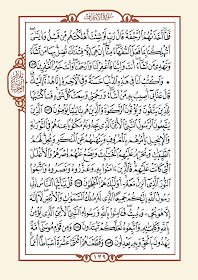 سورة الأعراف
فلما أخذتهم الرجفة قال رب لو شئت أهلكتهم من قبل وإياي
أتهلكنا بما فعل السفهاء منا إن هي إلا فتنتك تضل بها من تشاء
وتهدي من تشاء أنت ولينا فاغفر لنا وارحمنا وأنت خير الغافرين
واكتب لنا في هذه الدنيا حسنة وفي الآخرة إنا هدنا إليك
قال عذابي أصيب به من أشاء ورحمتي وسعت كل شيء فسأكتبها
للذين يتقون ويؤتون الزكوة والذين هم بآياتنا يؤمنون الذين
يتبعون الرسول النبي الأمي الذي يجدونه مكتوبا عندهم في التورية
والإنجيل يأمرهم بالمعروف وينهاهم عن المنكر ويحل لهم
الطيبات ويحرم عليهم الخبائث ويضع عنهم إصرهم والأغلال
التي كانت عليهم فالذين آمنوا به وعزروه ونصروه واتبعوا
النور الذي أنزل معه أولئك هم المفلحون قل يأيها الناس إني
رسول الله إليكم جميعا الذي له ملك السموات والأرض لا إله
إلا هو يحيي ويميت فآمنوا بالله ورسوله النبي الأمي الذي يؤمن
بالله وكلماته واتبعوه لعلكم تهتدون ومن قوم موسى أمة
يهدون بالحق وبه يعدلون وقطعناهم اثنتي عشرة أسباطا أمما
١٣٩